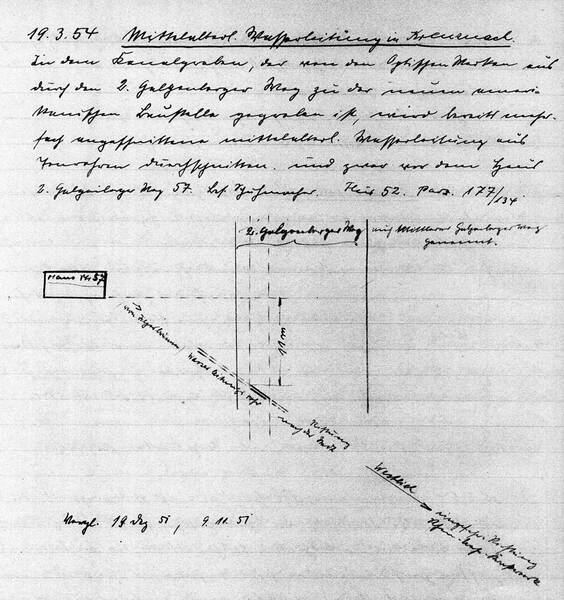 19.3.54 Mittelalterl. Wasserleitung in Kreuznach.
In dem Kanalgraben, der von den Optischen Werken aus
durch den 2. Galgenberger Weg zu der neuen ameri-
kanischen Baustelle gegraben ist, wird bereits mehr-
fach angeschnittene mittelalterl. Wasserleitung aus
Tonrohren durchschnitten. und zwar vor dem Haus
2. Galgenberger Weg 57. Bes. Schuhmacher. Flur 52. Parz. 177/134
2. Galgenberger Weg
auch Mittlerer Galgenberger Weg
genannt.
Haus Nr. 57
11 m
von
nach der Stadt
Richtung
Westlich
Richtung
Vergl. 18 Dez 51, 9.11.51